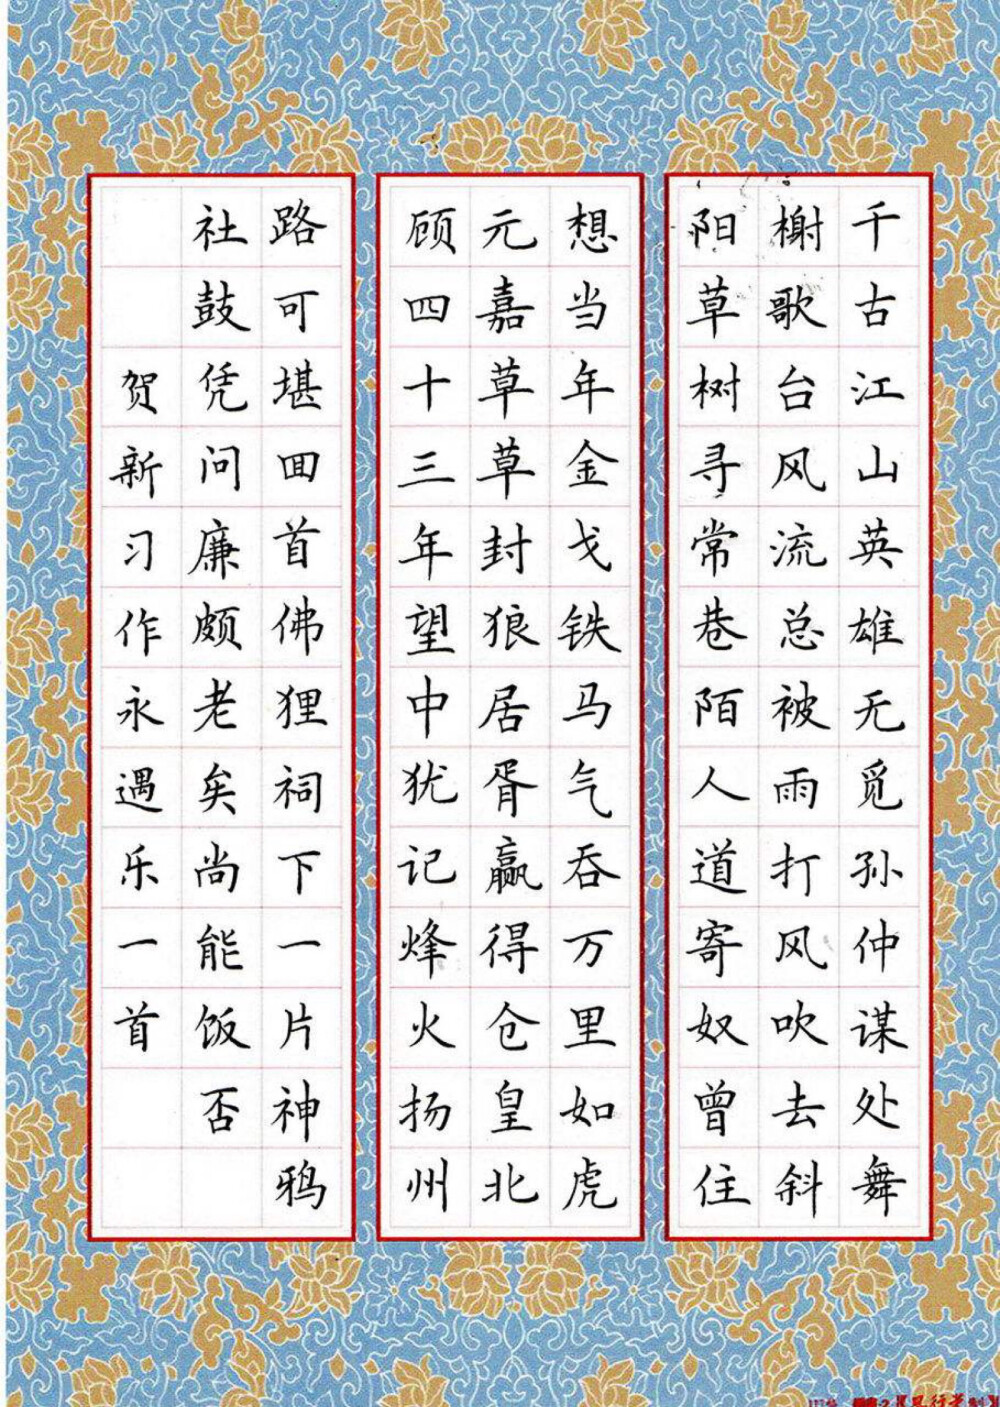 千古江山英雄无觅孙仲谋处舞
榭歌台风流总被雨打风吹去斜
阳草树寻常巷陌人道寄奴曾住
想当年金戈铁马气吞万里如虎
元嘉草草封狼居胥赢得仓皇北
顾四十三年望中犹记烽火扬州
路可堪回首佛狸祠下一片神鸦
社鼓凭问廉颇老矣尚能饭否
贺新习作永遇乐一首